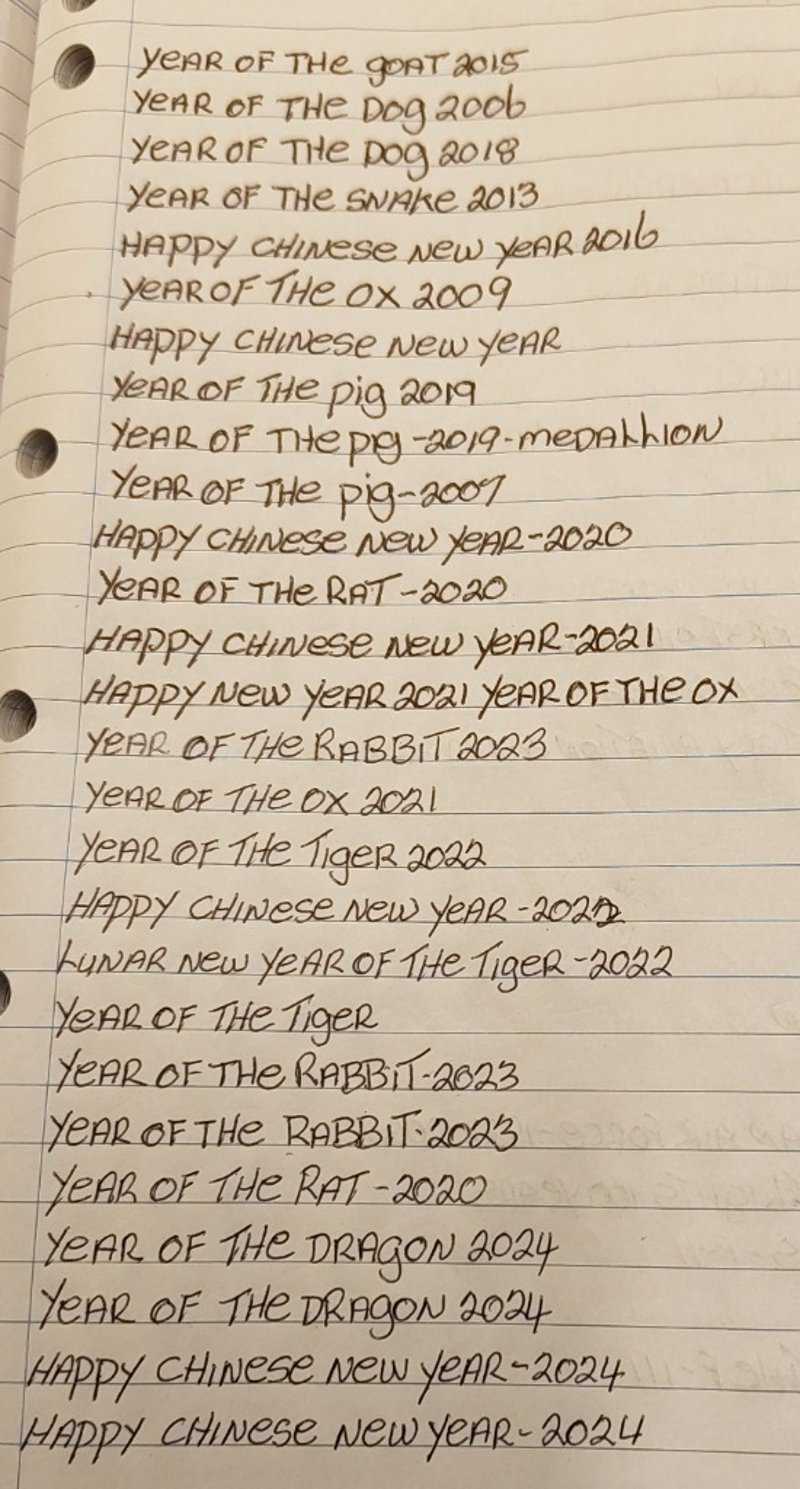 YEAR OF THE GOAT 2015
YEAR OF THE DOG 2006
YEAR OF THE DOG 2018
YEAR OF THE SNAKE 2013
HAPPY CHINESE NEW YEAR 2016
YEAR OF THE OX 2009
HAPPY CHINESE NEW YEAR
YEAR OF THE pig 2019
YEAR OF THE pig -2019- MEDALLION
YEAR OF THE pig-2007
HAPPY CHINESE NEW YEAR-2020
YEAR OF THE RAT-2020
HAPPY CHINESE NEW YEAR-2021
HAPPY NEW YEAR 2021 YEAR OF THE OX
YEAR OF THE RABBIT 2023
YEAR OF THE OX 2021
YEAR OF THE TIGER 2022
HAPPY CHINESE NEW YEAR-2022
LUNAR NEW YEAR OF THE TIGER-2022
YEAR OF THE TIGER
YEAR OF THE RABBIT-2023
YEAR OF THE RABBIT-2023
YEAR OF THE RAT-2020
YEAR OF THE DRAGON 2024
YEAR OF THE DRAGON 2024
HAPPY CHINESE NEW YEAR-2024
HAPPY CHINESE NEW YEAR-2024